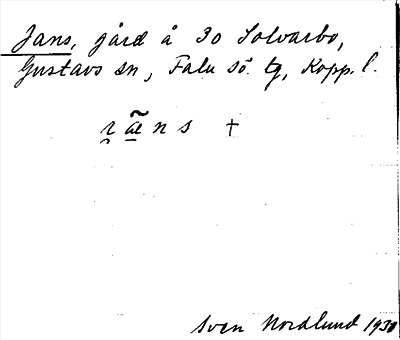 Jans, gård å 30 Solvarbo,
Gustavs sn, Falu sö. tg, Kopp. l.
æ̃ n s +
Sven Nordlund 1930